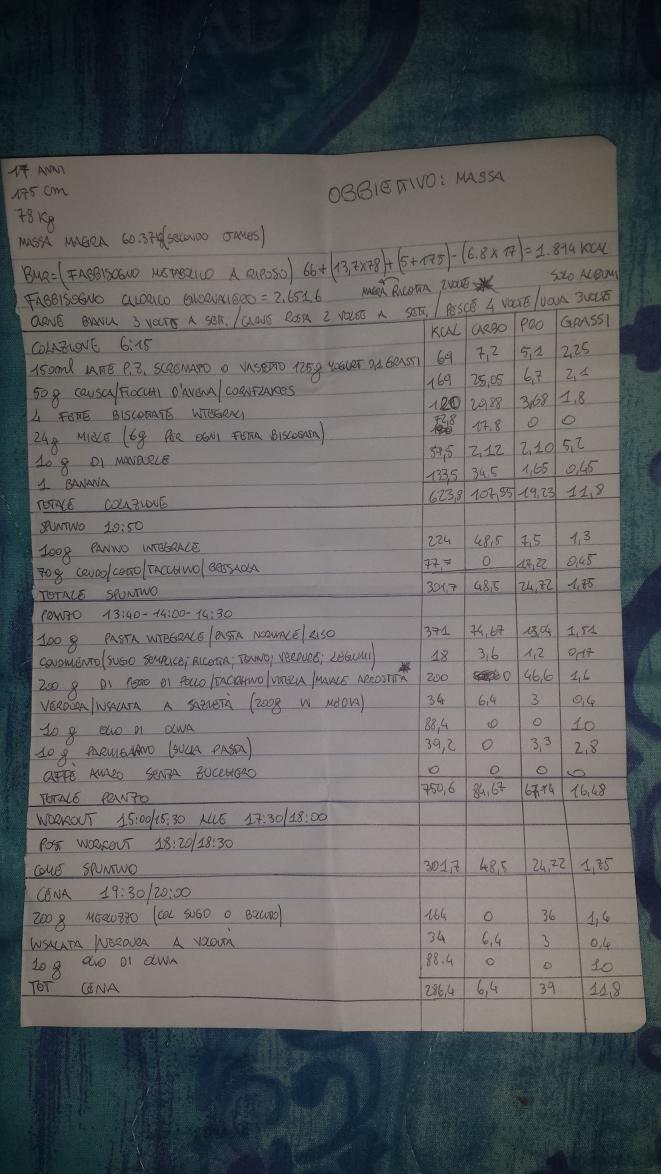 17 ANNI
175 cm
78 Kg
OBBIETTIVO: MASSA
MASSA MAGRA 60.37Kg (SECONDO JAMES)
BMR= (FABBISOGNO METABOLICO A RIPOSO) 66+(13,7x78)+(5+175)-(6.8 x 17)=1.894 KCAL
FABBISOGNO CALORICO GIORNALIERO = 2.651,6 MAGRA RICOTTA 2 VOLTE SOLO ALBUMI
CARNE BIANCA 3 VOLTE A SETT. / CARNE ROSSA 2 VOLTE A SETT. / PESCE 4 VOLTE / UOVA 3 VOLTE
KCAL CARBO PRO GRASSI
COLAZIONE 6:15
150ml LATTE P.Z. SCREMATO O VASETTO 125g YOGURT 0,1 GRASSI 69 7,2 5,1 2,25
50g CRUSCA/FIOCCHI D'AVENA/CORNFLAKES 169 25,05 6,7 2,1
4 FETTE BISCOTTATE INTEGRALI 120 20,88 3,68 1,8
24g MIELE (6g PER OGNI FETTA BISCOTTATA) 72,8 17,8 0 0
10g DI MANDORLE 59,5 2,12 2,10 5,2
1 BANANA 133,5 34,5 1,65 0,45
TOTALE COLAZIONE 623,8 107,55 19,23 11,8
SPUNTINO 10:50
100g PANNO INTEGRALE 224 48,5 7,5 1,3
70g CRUDO/COTTO/TACCHINO/BRESAOLA 77,7 0 17,22 0,45
TOTALE SPUNTINO 301,7 48,5 24,72 1,75
PRANZO 13:40-14:00-14:30
100 g PASTA INTEGRALE/PASTA NORMALE/RISO 371 74,67 13,04 1,51
CONDIMENTO/SUGO SEMPLICE; RICOTTA; TONNO; VERDURE; LEGUMI) 18 3,6 1,2 0,17
200 g DI PETTO DI POLLO/TACCHINO/VITELLA/MAIALE ARROSTITA 200 0 46,6 1,6
VERDURA/INSALATA A SAZIETÀ (200g IN MEDIA) 34 6,4 3 0,4
10 g OLIO DI OLIVA 88,4 0 0 10
10 g PARMIGIANO (SULLA PASTA) 39,2 0 3,3 2,8
CAFFÈ AMARO SENZA ZUCCHERO 0 0 0 0
TOTALE PRANZO 750,6 84,67 67,14 16,48
WORKOUT 15:00/15:30 ALLE 17:30/18:00
POST WORKOUT 18:20/18:30
COME SPUNTINO 301,7 48,5 24,72 1,75
CENA 19:30/20:00
200 g MERLUZZO (COL SUGO O BOLLITO) 164 0 36 1,4
INSALATA/VERDURA A VOLONTÀ 34 6,4 3 0,4
10 g OLIO DI OLIVA 88.4 0 0 10
TOT CENA 286,4 6,4 39 11,8